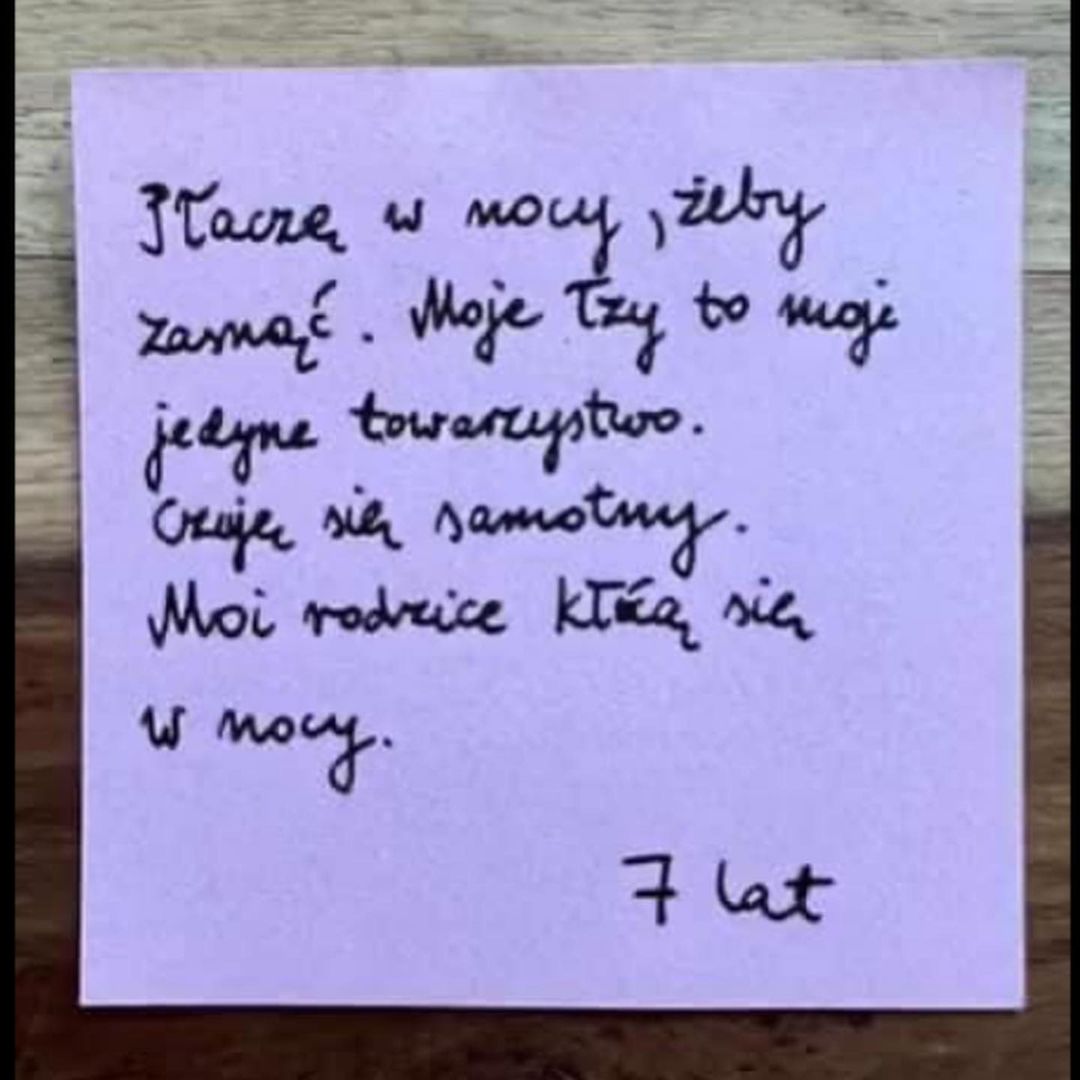 Płaczę w nocy, żeby
zasnąć. Moje łzy to moje
jedyne towarzystwo.
Czuję się samotny.
Moi rodzice kłócą się
w nocy.
7 lat